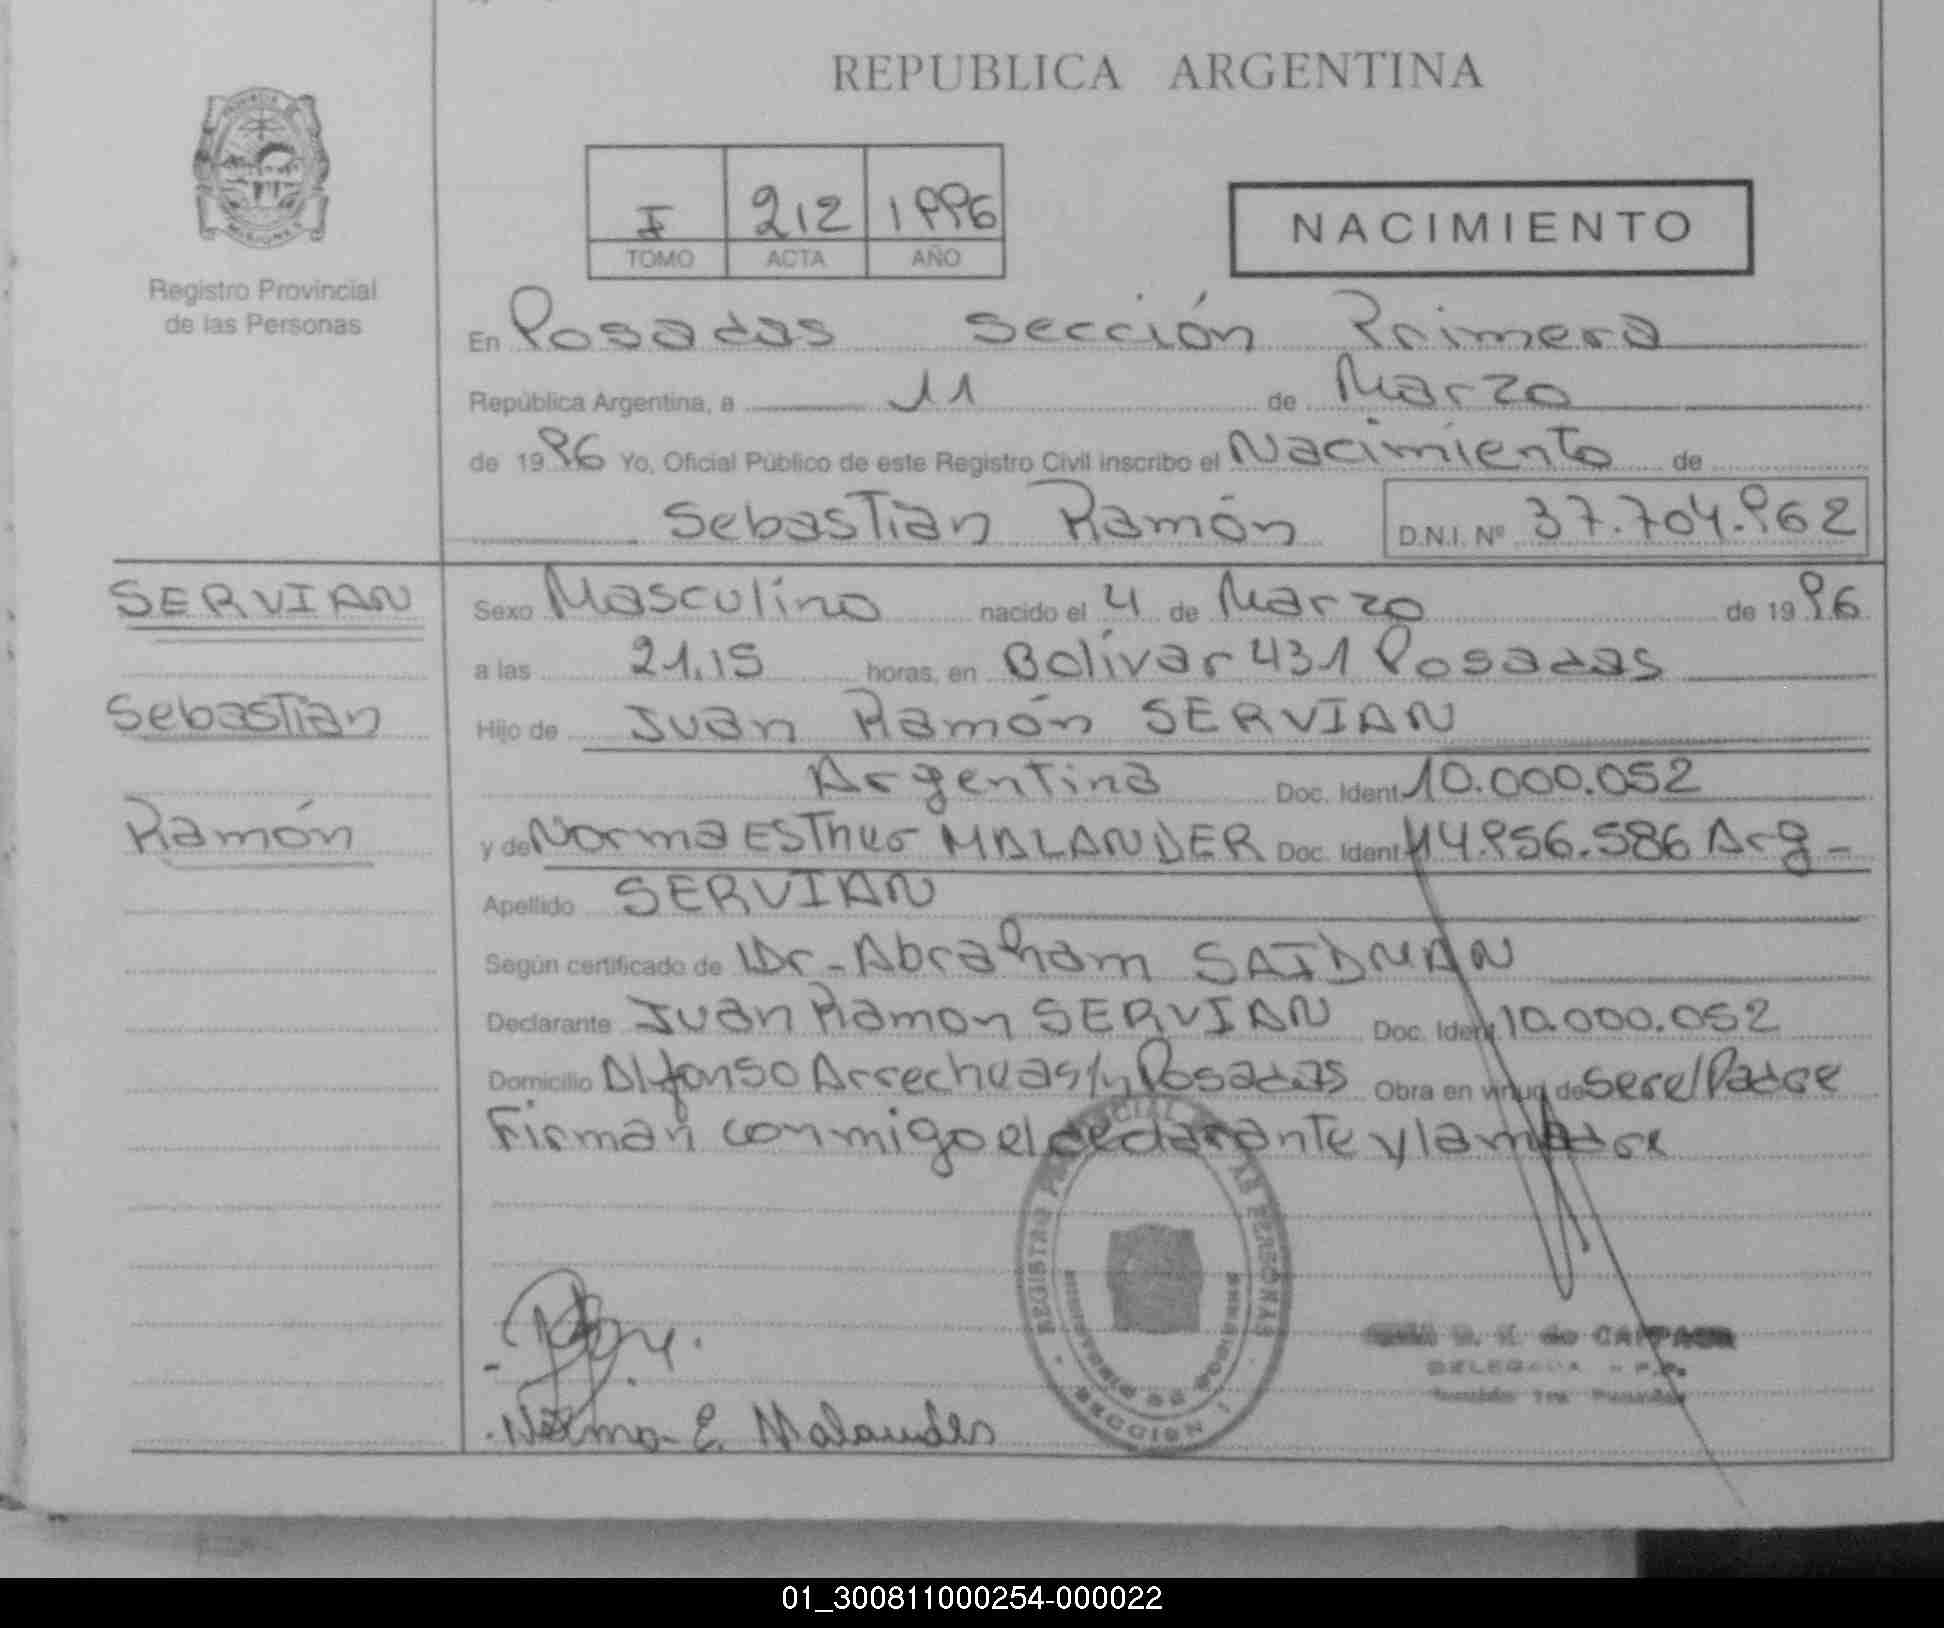 REPUBLICA ARGENTINA
I 212 1996
TOMO ACTA AÑO
NACIMIENTO
MISIONES
Registro Provincial
de las Personas
En Posadas Sección Primera
República Argentina, a 11 de Marzo
de 1996 Yo, Oficial Público de este Registro Civil inscribo el Nacimiento de
Sebastian Ramón D.N.I. Nº 37.704.962
SERVIAN
Sebastian
Ramón
Sexo Masculino nacido el 4 de Marzo de 1996
a las 21,15 horas, en Bolívar 431 Posadas
Hijo de Juan Ramón SERVIAN
Argentina Doc. Ident. 10.000.052
y de Norma Esther MALANDER Doc. Ident. 14.956.586 Arg-
Apellido SERVIAN
Según certificado de Dr- Abraham SAIDMAN
Declarante Juan Ramon SERVIAN Doc. Ident. 10.000.052
Domicilio Alfonso Arrechea s/n Posadas Obra en virtud de ser el Padre
Firman conmigo el declarante y la madre
REGISTRO PROVINCIAL DE LAS PERSONAS
MINISTERIO DE GOBIERNO
SECCION 1
DELEGADA
Norma E. Malander
01_300811000254-000022